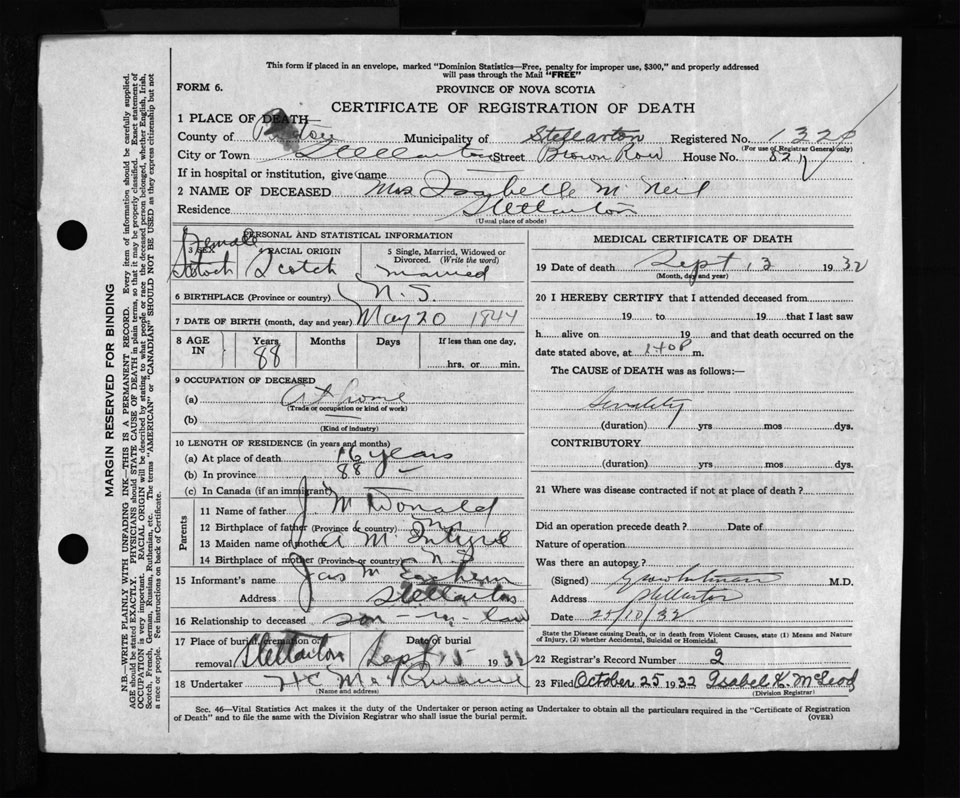 This form if placed in an envelope, marked "Dominion Statistics—Free, penalty for improper use, $300," and properly addressed
will pass through the Mail "FREE"
FORM 6.
PROVINCE OF NOVA SCOTIA
CERTIFICATE OF REGISTRATION OF DEATH
1 PLACE OF DEATH—
County of Pictou Municipality of Stellarton Registered No.
(For use of Registrar General only)
City or Town Stellarton Street Brown Row House No.
If in hospital or institution, give name
2 NAME OF DECEASED Mrs. Isabelle McNeil
Residence Stellarton
(Usual place of abode)
PERSONAL AND STATISTICAL INFORMATION
3 SEX Female
4 RACIAL ORIGIN Scotch
5 Single, Married, Widowed or Divorced. (Write the word) Married
6 BIRTHPLACE (Province or country) N.S.
7 DATE OF BIRTH (month, day and year) May 20 1844
8 AGE IN Years 88 Months Days If less than one day,
hrs. or min.
9 OCCUPATION OF DECEASED
(a) At home
(Trade or occupation or kind of work)
(b)
(Kind of industry)
10 LENGTH OF RESIDENCE (in years and months)
(a) At place of death 16 years
(b) In province 88
(c) In Canada (if an immigrant)
Parents
11 Name of father J McDonald
12 Birthplace of father (Province or country) N.S.
13 Maiden name of mother McIntyre
14 Birthplace of mother (Province or country) N.S.
15 Informant's name Jas
Address Stellarton
16 Relationship to deceased son-in-law
17 Place of burial, cremation or removal Stellarton Date of burial Sept 15 1932
18 Undertaker
(Name and address)
MEDICAL CERTIFICATE OF DEATH
19 Date of death Sept 13 1932
(Month, day and year)
20 I HEREBY CERTIFY that I attended deceased from
19 to 19 that I last saw
h alive on 19 and that death occurred on
date stated above, at m.
The CAUSE of DEATH was as follows:—
Senility
(duration) yrs mos dys.
CONTRIBUTORY
(duration) yrs mos dys.
21 Where was disease contracted if not at place of death?
Did an operation precede death? Date of
Nature of operation
Was there an autopsy?
(Signed) M.D.
Address Stellarton
Date 25/10/32
State the Disease causing Death, or in death from Violent Causes, state (1) Means and Nature
of Injury, (2) whether Accidental, Suicidal or Homicidal.
22 Registrar's Record Number 2
23 Filed October 25 1932 Isabel K. McLeod
(Division Registrar)
Sec. 46—Vital Statistics Act makes it the duty of the Undertaker or person acting as Undertaker to obtain all the particulars required in the "Certificate of Registration
of Death" and to file the same with the Division Registrar who shall issue the burial permit.
(OVER)
MARGIN RESERVED FOR BINDING
N.B.—WRITE PLAINLY WITH UNFADING INK—THIS IS A PERMANENT RECORD. Every item of information should be carefully supplied.
AGE should be stated EXACTLY. PHYSICIANS should STATE CAUSE OF DEATH in plain terms, so that it may be properly classified. Exact statement of
OCCUPATION is very important. RACIAL ORIGIN will be described by stating to what people or race the deceased person belonged, whether English, Irish,
Scotch, French, German, Russian, Ruthenian, etc. The terms "AMERICAN" or "CANADIAN" SHOULD NOT BE USED as they express citizenship but not
a race or people. See instructions on back of Certificate.